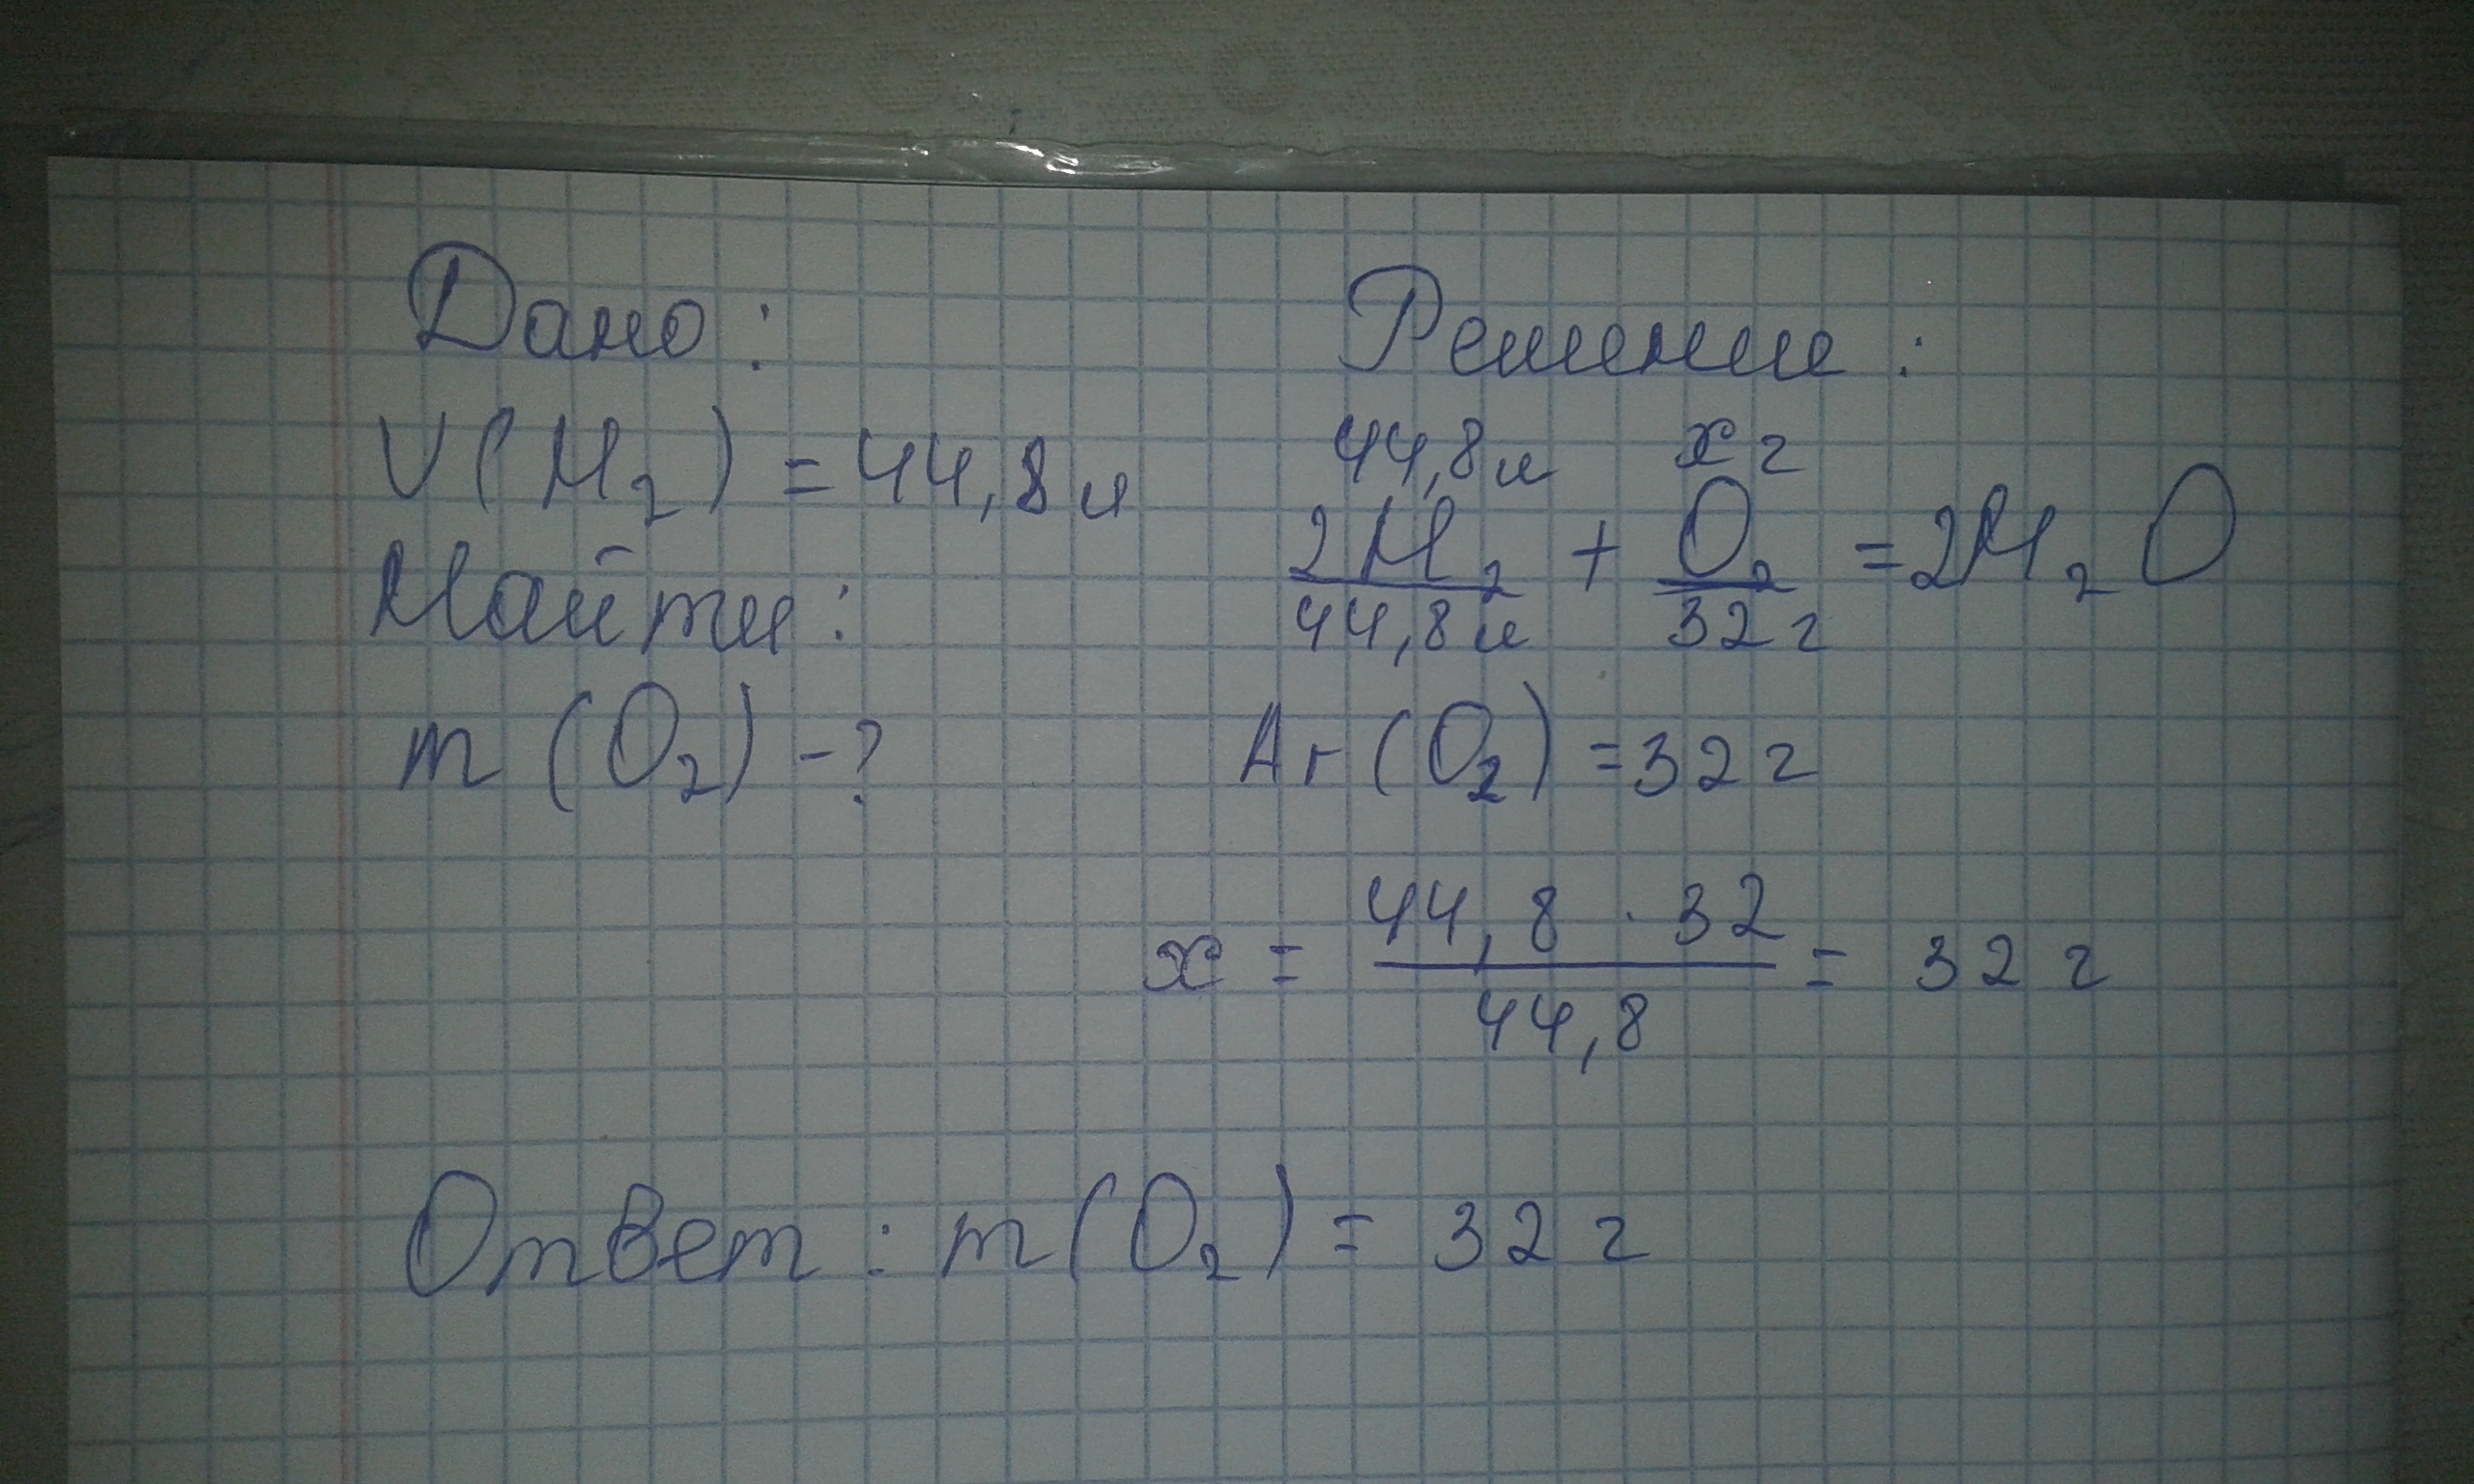 Дано:
V(H₂) = 44,8 л
Найти:
m (O₂) - ?
Решение:
44,8 л x г
2H₂ + O₂ = 2H₂O
44,8 л 32 г
Ar (O₂) = 32 г
x = 44,8 · 32 / 44,8 = 32 г
Ответ: m(O₂) = 32 г